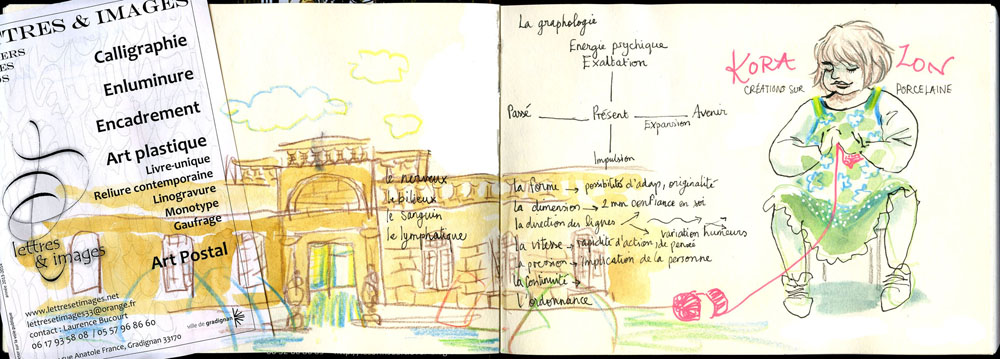 TRES & IMAGES
Calligraphie
Enluminure
Encadrement
Art plastique
Livre-unique
Reliure contemporaine
Linogravure
Monotype
Gaufrage
Art Postal
lettres
& images
www.lettresetimages.net
lettresetimages33@orange.fr
contact : Laurence Bucourt
06 17 93 58 08 / 05 57 96 86 60
rue Anatole France, Gradignan 33170
ville de gradignan
le nerveux
le bilieux
le sanguin
le lymphatique
La graphologie
Energie psychique
Exaltation
Passé Présent Avenir
Expansion
Impulsion
la forme → possibilités d'adap, originalité
la dimension → 2 mm confiance en soi
la direction des lignes
variation humeurs
la vitesse → rapidité d'action, de pensée
la pression → implication de la personne
la continuité
l'ordonnance
KORA ZON
CRÉATIONS SUR PORCELAINE